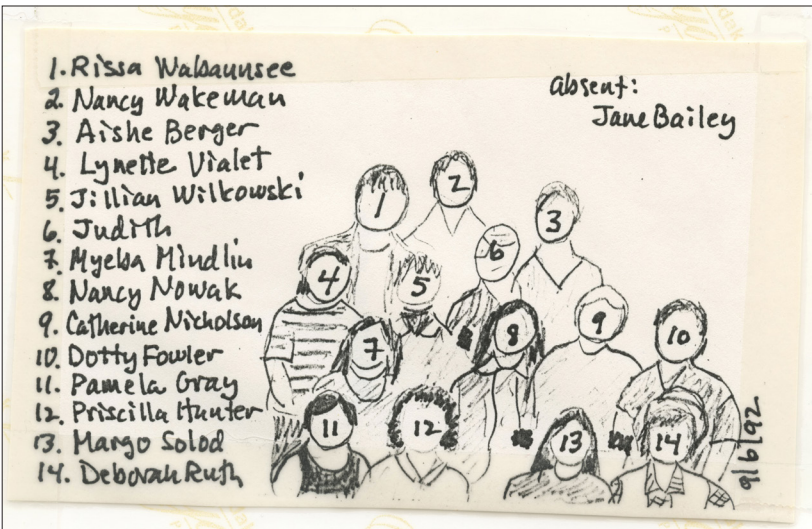 1. Rissa Wabaunsee
2. Nancy Wakeman
3. Aishe Berger
4. Lynette Vialet
5. Jillian Wilkowski
6. Judith
7. Myeba Mindlin
8. Nancy Nowak
9. Catherine Nicholson
10. Dotty Fowler
11. Pamela Gray
12. Priscilla Hunter
13. Margo Solod
14. Deborah Ruth
Absent:
Jane Bailey
1
2
3
4
5
6
7
8
9
10
11
12
13
14
9/6/92